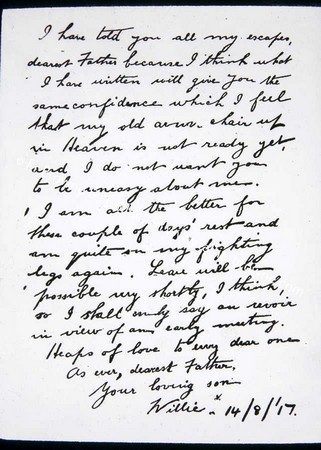 I have told you all my escapes,
dearest Father because I think what
I have written will give you the
same confidence which I feel
that my old arm-chair up
in Heaven is not ready yet,
and I do not want you
to be uneasy about me.
I am all the better for
these couple of days' rest and
am quite on my fighting
legs again. Leave will be
possible very shortly, I think,
so I shall only say au revoir
in view of an early meeting.
Heaps of love to every dear one
As ever, dearest Father,
Your loving son
Willie. 14/8/17.